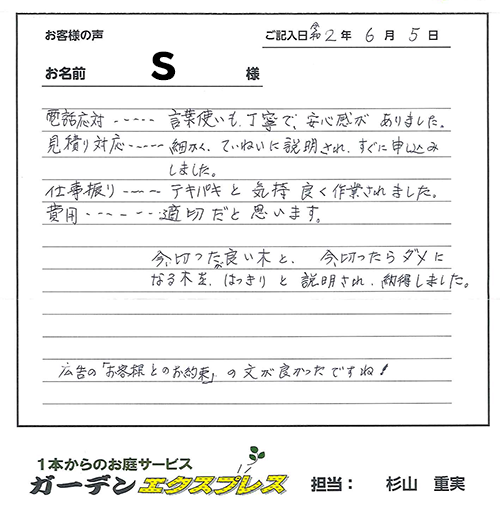 お客様の声
ご記入日 令和 2 年 6 月 5 日
お名前 S 様
電話応対 ----- 言葉使いも、丁寧で、安心感が ありました。
見積り対応 ---- 細かく、ていねいに説明され、すぐに申込み
しました。
仕事振り ---- テキパキと 気持 良く作業されました。
費用 ------ 適切だと思います。
今、切った が 良い木と、 今切ったらダメに
なる木を、はっきりと 説明され、納得しました。
広告の「お客様とのお約束」の文が良かったですね!
1本からのお庭サービス
ガーデンエクスプレス 担当: 杉山 重実